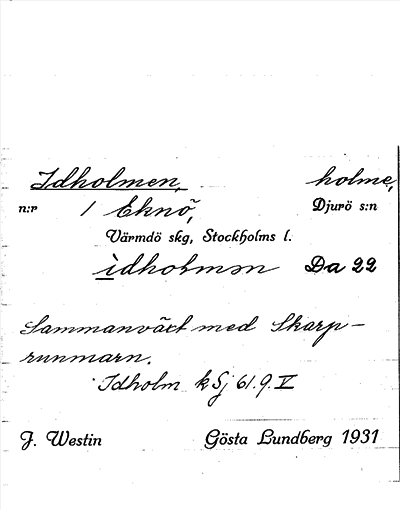 Idholmen, holme,
n:r 1 Eknö, Djurö s:n
Värmdö skg, Stockholms l.
ìdhoɫmən Da 22
Sammanväxt med Skarp-
runmarn.
Idholm kSj 61.9.V
J. Westin Gösta Lundberg 1931